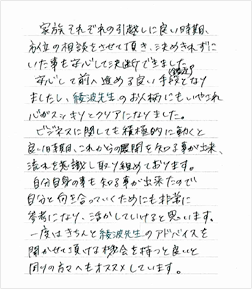 家族それぞれの引越しに良い時期、
方位の相談をさせて頂き、決めきれずに
いた事も安心して決断できました。
安心して前へ進める良い手段となり
ましたし、綾波先生のお人柄にもいやされ
心がスッキリとクリアになりました。
ビジネスに関しても積極的に動くと
良い時期、これからの展開を知る事が出来、
流れを意識し取り組めております。
自分自身の事も知る事が出来たので
自分と向き合っていくためにも非常に
参考になり、活かしていけると思います。
一度はきちんと綾波先生のアドバイスを
聞かせて頂ける機会を持つと良いと
周りの方々へもオススメしています。